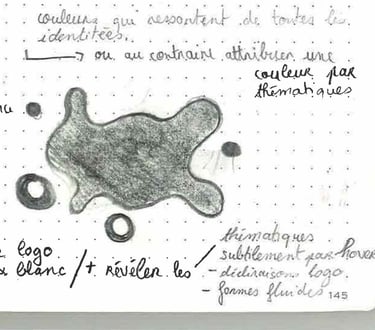 couleurs qui ressortent de toutes les
identitées.
ou au contraire attribuer une
couleur par
thématiques
logo
blanc / + révéler les / thématiques
subtilement par hover
- déclinaisons logo.
- formes fluides
145